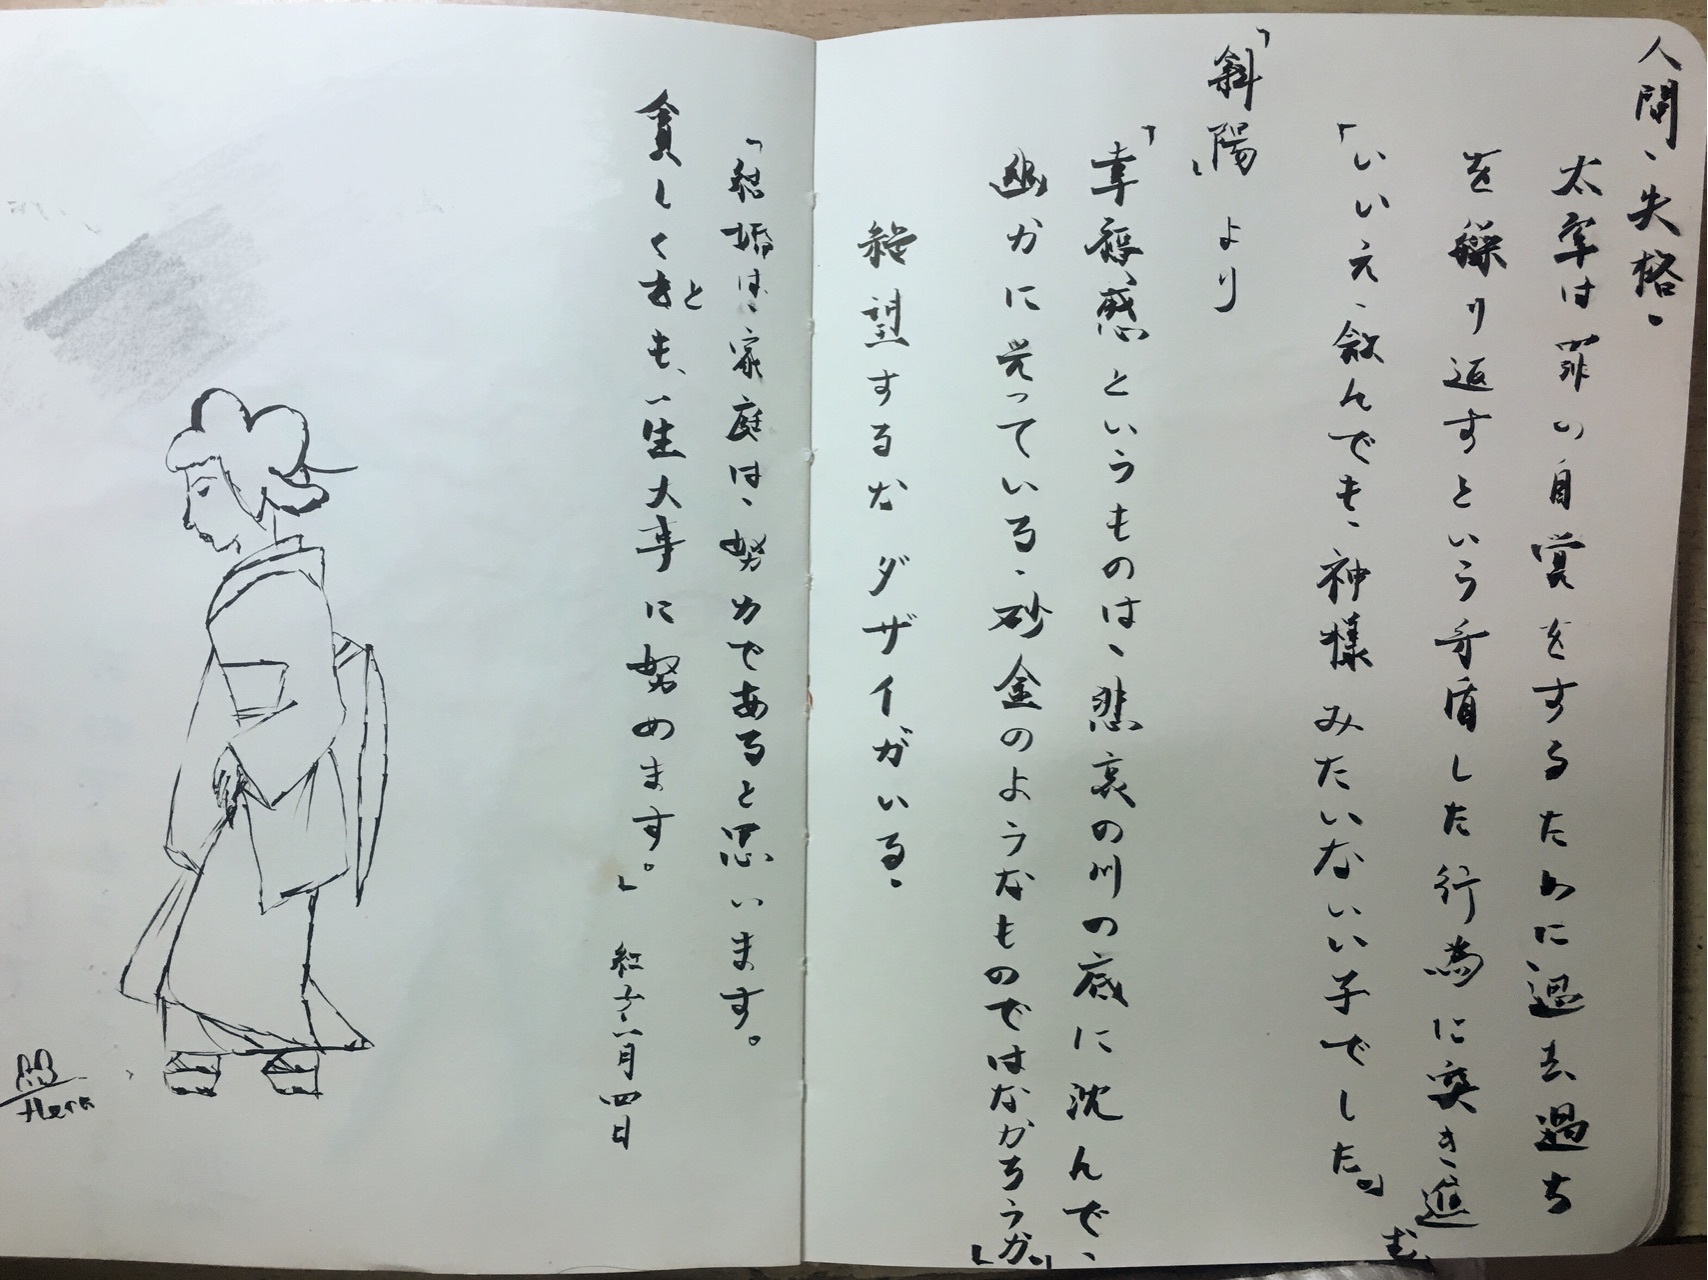 人間、失格。
太宰は罪の自賞をするために過去過ち
を繰り返すという矛盾した行為に突き進
む
「いいえ、飲んでも、神様みたいないい子でした。」
「斜陽」より
「幸福感というものは、悲哀の川の底に沈んで、
幽かに光っている、砂金のようなものではなかろうか。」
絶望するなダザイがいる。
「結婚は、家庭は、努力であると思います。
貧しくとも、一生大事に努めます。」
月四日
Hera